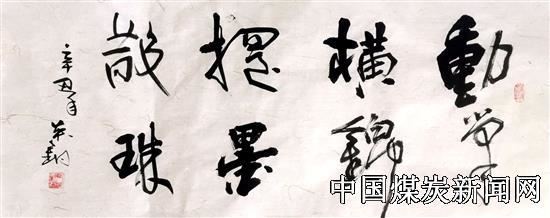 動筆
橫錦
墨
散珠
辛丑年
中国煤炭新闻网